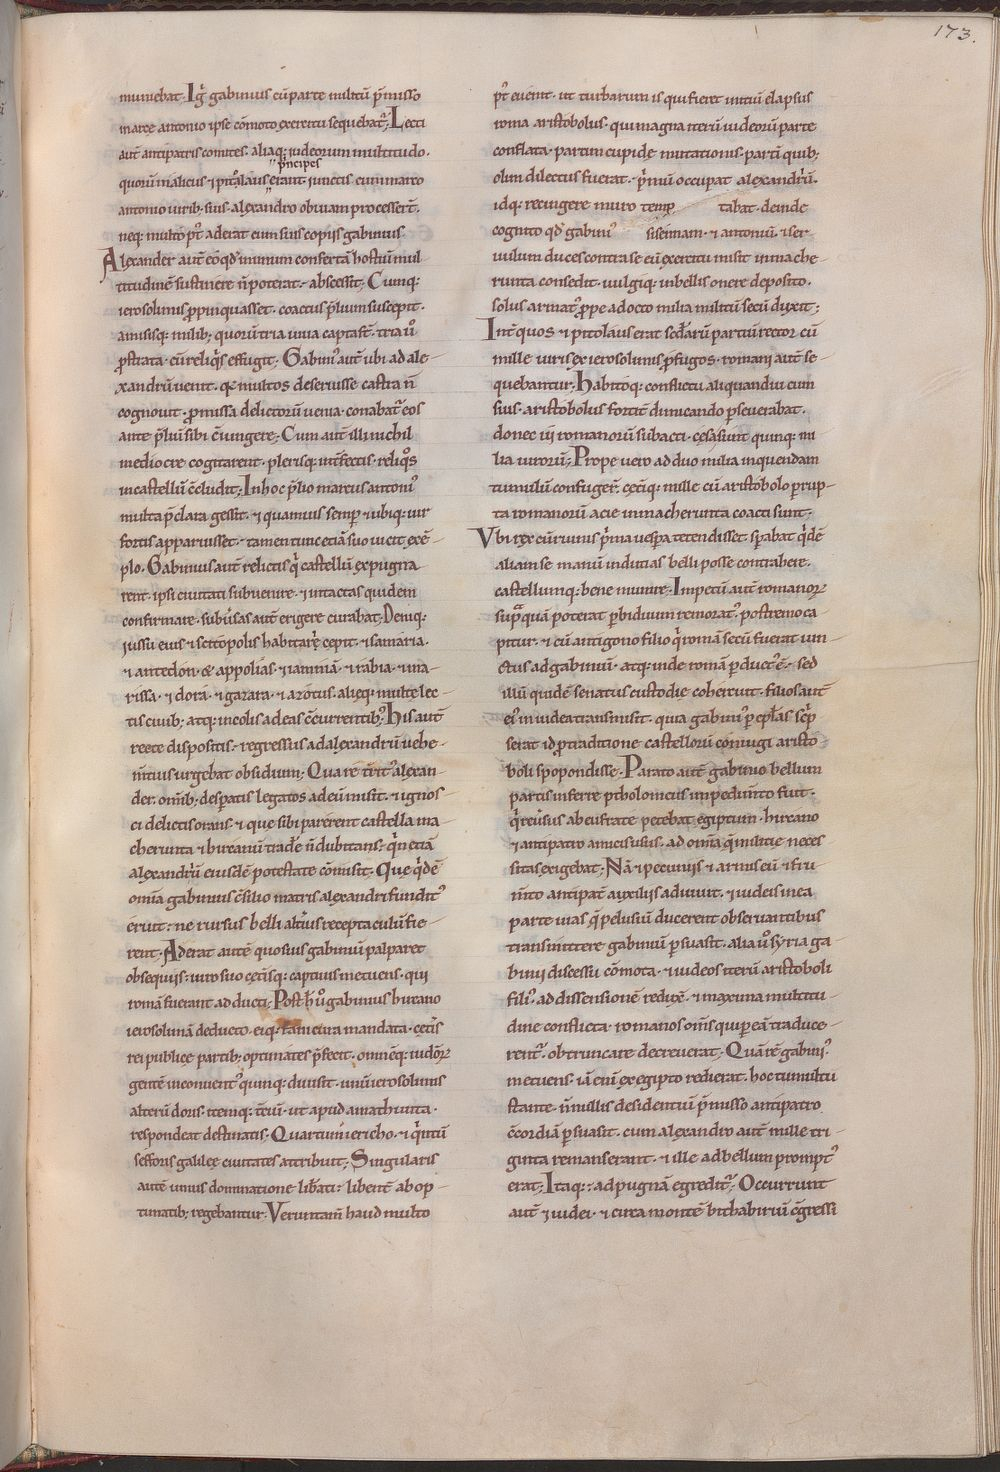 173.
muniebat. Igr̄ gabinius cū parte militū p̄misso
marco antonio ipse cōmoto exercitu sequebat᷑; Lecti
aut̄ antipatris comites. aliaq; iudeorum multitudo.
p̄ncipes
quorū malicus ⁊ pitolaus erant iunctis cum marco
antonio uirib; suis. alexandro obuiam processer̄t.
neq; multo p̄t aderat cum suis copiis gabinius.
Alexander aut̄ eo qd̄ inimicum confertā hostiū mul
titudinē sustinere n̄ poterat. abscessit; Cumq;
ierosolimis ppinquasset. coactus p̄lium suscepit.
amisisq; milib; quorū tria uiua capta st̄. tria ů
pstrata. cū reliq̇s effugit; Gabini᷒ aut̄ ubi ad ale-
xandrū uenit. qa multos deseruisse castra n̄
cognouit. promissa delictorū uenia. conabat᷑ eos
ante p̄liū sibi c̄iungere; Cum aut̄ illi nichil
mediocre cogitarent. plerisq; int̄fectis. reliq̊s
in castellū c̄cludit; In hoc p̄lio marcus antoni᷒
multa p̄clara gessit. ⁊ quamuis semp̱ ⁊ ubiq; uir
fortis apparuisset. tamen tunc etiā suo uicit exē-
plo. Gabinius aut̄ relictis q̇ castellū expugna
rent. ipsi ciuitati subuenire. ⁊ intactas quidem
confirmare. subusas aut̄ erigere curabat; Deniq;
iussu eius ⁊ scitopolis habitari cepit. ⁊ samaria.
⁊ antedon. & appolias. ⁊ iamniā. ⁊ rabia. ⁊ ma-
rissa. ⁊ dora. ⁊ gazara. ⁊ azotus. alieq; multe lec-
tis ciuib; atq; incolis ad eas c̄currentib᷒; His aut̄
recte dispositis. regressus ad alexandrū uehe-
m̄tius urgebat obsidium; Qua re territ᷒ alexan-
der. om̄ib; desperatis legatos ad eū misit. ⁊ ignos-
ci delictis orans. ⁊ que sibi parerent castella ma-
cherunta ⁊ hircaniū trade᷑ n̄ dubitans. q̇n etiā
alexandriū eiusdē potestate cōmisit. Que q̇dē
omīa gabinius c̄silio matris alexandri fundit᷒
eruit. ne rursus belli alt̄ius receptaculū fie-
rent. Aderat autē quo suis gabiniū palparet
obsequiis. uiro suo cet̄isq; captiuis metuens. qui
romā fuerant adducti; Post h̊ ů gabinius hircano
ierosolimā deducto. eiq; fani cura mandata. cet̄is
rei publicę partib; optimates p̄fecit. omnēq; iudeoꝝ
gentē in conuent᷒ quinq; diuisit. unū ierosolimis
alterū doris. itemq; t̄ciū. ut apud amathunta.
respondeat destinatis. Quartum iericho. ⁊ q̇ntū
sefforis galileę ciuitates attribuit; Singularis
autē unius dominatione lib̄ati. libent̄ ab op-
timatib; regebantur. Veruntam̄ haud multo
p̄t euenit. ut turbarum is qui fieret initiū elapsus
roma aristobolus. qui magna iterū iudeorū parte
conflata. partim cupide mutationis. parti quib;
olim dilectus fuerat. p̄mū occupat alexandriū.
idq; recingere muro temp tabat. deinde
cognito qd̄ gabini᷒ sisennam. ⁊ antoniū. ⁊ ser-
uilium duces contra se cū exercitu misit in mache-
runta consedit. uulgiq; inbellis onere deposito.
solus armat᷒ prope ad octo milia militū secū duxit;
Int̄ quos ⁊ pitolaus erat secdarū partiū rector cū
mille uiris ex ierosolimis profugos. romani aut̄ se-
quebantur. Habitoq; conflictu aliquandiu cum
suis. aristobolus fortit̄ dimicando perseuerabat.
donec ui romanorū subacti. cesa sunt quinq; mi-
lia uirorū; Prope uero ad duo milia in quendam
tumulū confuger̄. cet̄iq; mille cū aristobolo prup-
ta romanorū acie in macherunta coacti sunt.
Vbi rex cū ruinis p̄ma uespa tetendisset. sperabat q̇dē
aliam se manū indutias belli posse contrahere.
castellumq; bene munire. Impetū aut̄ romanoꝝ
supra quā poterat per biduum remorat᷒. postremo ca-
pitur. ⁊ cū antigono filio q̇ romā secū fuerat uin-
ctus ad gabiniū. atq; inde romā perduct᷒ ē. sed
illū quidē senatus custodie cohercuit. filios aut̄
ei᷒ in iudea transmisit. quia gabini᷒ per ep̄las sc̄p-
serat id pro traditione castellorū coniugi aristo-
boli spopondisse. Parato aut̄ gabinio bellum
partis inferre ptholomeus impedim̄to fuit.
q̇ reuersus ab eufrate petebat egiptum. hircano
⁊ antipatro amicis usus. ad omīa q̄ militie neces-
sitas exigebat; Nā ⁊ pecuniis ⁊ armis eū ⁊ fru-
m̄to antipat̄ auxiliis adiuuit. ⁊ iudeis in ea
parte uias q̄ pelusiū ducerent obseruantibus
transmittere gabiniū persuasit. alia ů syria ga-
binii discessu cōmota. ⁊ iudeos iterū aristoboli
fili᷒. ad dissensionē reduxē. ⁊ maxima multitu-
dine conflicta. romanos om̄s qui per eā traduce-
rent᷑. obtruncare decreuerat; Quā rē gabini᷒.
metuens. iā enī ex egipto redierat. hoc tumultu
stante. n̄nullis desidentiū p̄misso antipatro
c̄cordiā persuasit. cum alexandro aut̄ mille tri-
ginta remanserant. ⁊ ille ad bellum prompt᷒
erat; Itaq; ad pugnā egredit᷑; Occurrunt
aut̄ ⁊ iudei. ⁊ circa montē bithabiriū c̄gressi